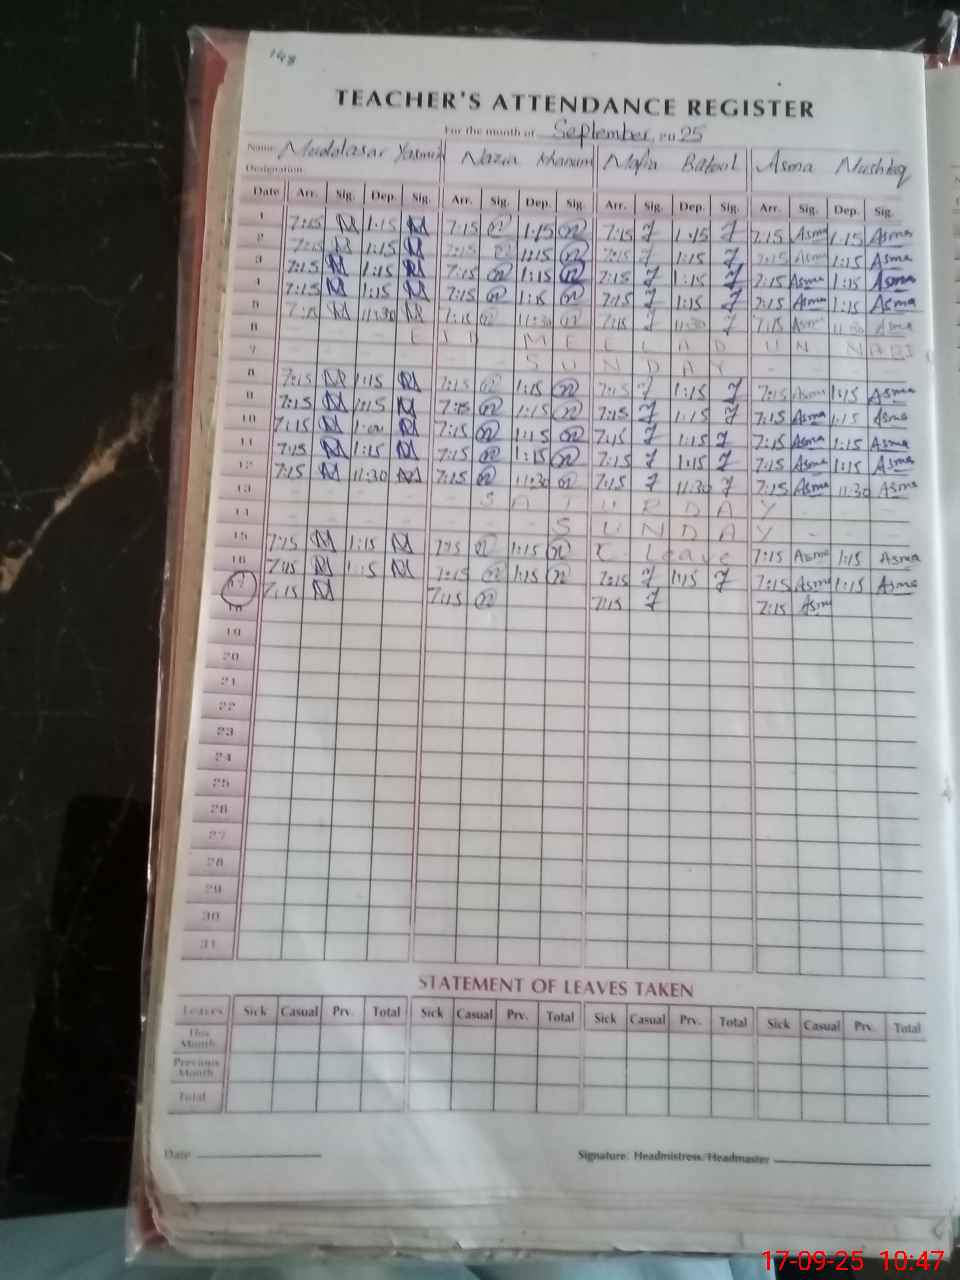 148
TEACHER'S ATTENDANCE REGISTER
For the month of September 2025
Name Mudalasar Yasmin Nazia Khanum Mafia Batool Asma Mushtaq
Designation
Date Arr. Sig. Dep. Sig. Arr. Sig. Dep. Sig. Arr. Sig. Dep. Sig. Arr. Sig. Dep. Sig.
1 7:15 M 1:15 M 7:15 n 1:15 n 7:15 7 1:15 7 7:15 Asma 1:15 Asma
2 7:15 M 1:15 M 7:15 n 1:15 n 7:15 7 1:15 7 7:15 Asma 1:15 Asma
3 7:15 M 1:15 M 7:15 n 1:15 n 7:15 7 1:15 7 7:15 Asma 1:15 Asma
4 7:15 M 1:15 M 7:15 n 1:15 n 7:15 7 1:15 7 7:15 Asma 1:15 Asma
5 7:15 M 11:30 M 7:15 n 11:30 n 7:15 7 11:30 7 7:15 Asma 11:30 Asma
6 - - - E I D M E E L A D U N NABI
7 - - - - - - S U N D A Y - - -
8 7:15 M 1:15 M 7:15 n 1:15 n 7:15 7 1:15 7 7:15 Asma 1:15 Asma
9 7:15 M 1:15 M 7:15 n 1:15 n 7:15 7 1:15 7 7:15 Asma 1:15 Asma
10 7:15 M M 7:15 n 1:15 n 7:15 7 1:15 7 7:15 Asma 1:15 Asma
11 7:15 M 1:15 M 7:15 n 1:15 n 7:15 7 1:15 7 7:15 Asma 1:15 Asma
12 7:15 M 11:30 M 7:15 n 11:30 n 7:15 7 11:30 7 7:15 Asma 11:30 Asma
13 - - - - - S A T U R D A Y - - -
14 - - - - - - - S U N D A Y - - -
15 7:15 M 1:15 M 7:15 n 1:15 n C Leave 7:15 Asma 1:15 Asma
16 7:15 M 1:15 M 7:15 n 1:15 n 7:15 7 1:15 7 7:15 Asma 1:15 Asma
17 7:15 M 7:15 n 7:15 7 7:15 Asm
18
19
20
21
22
23
24
25
26
27
28
29
30
31
STATEMENT OF LEAVES TAKEN
Leaves Sick Casual Prv. Total Sick Casual Prv. Total Sick Casual Prv. Total Sick Casual Prv. Total
This Month
Previous Month
Total
Date Signature: Headmistress/Headmaster
17-09-25 10:47